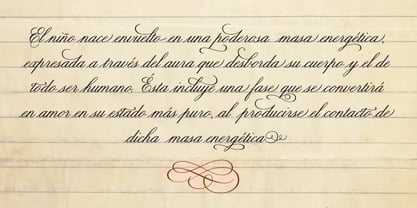 El niño nace envuelto en una poderosa masa energética,
expresada a través del aura que desborda su cuerpo y el de
todo ser humano. Ésta incluye una fase que se convertirá
en amor en su estado más puro, al producirse el contacto de
dicha masa energética